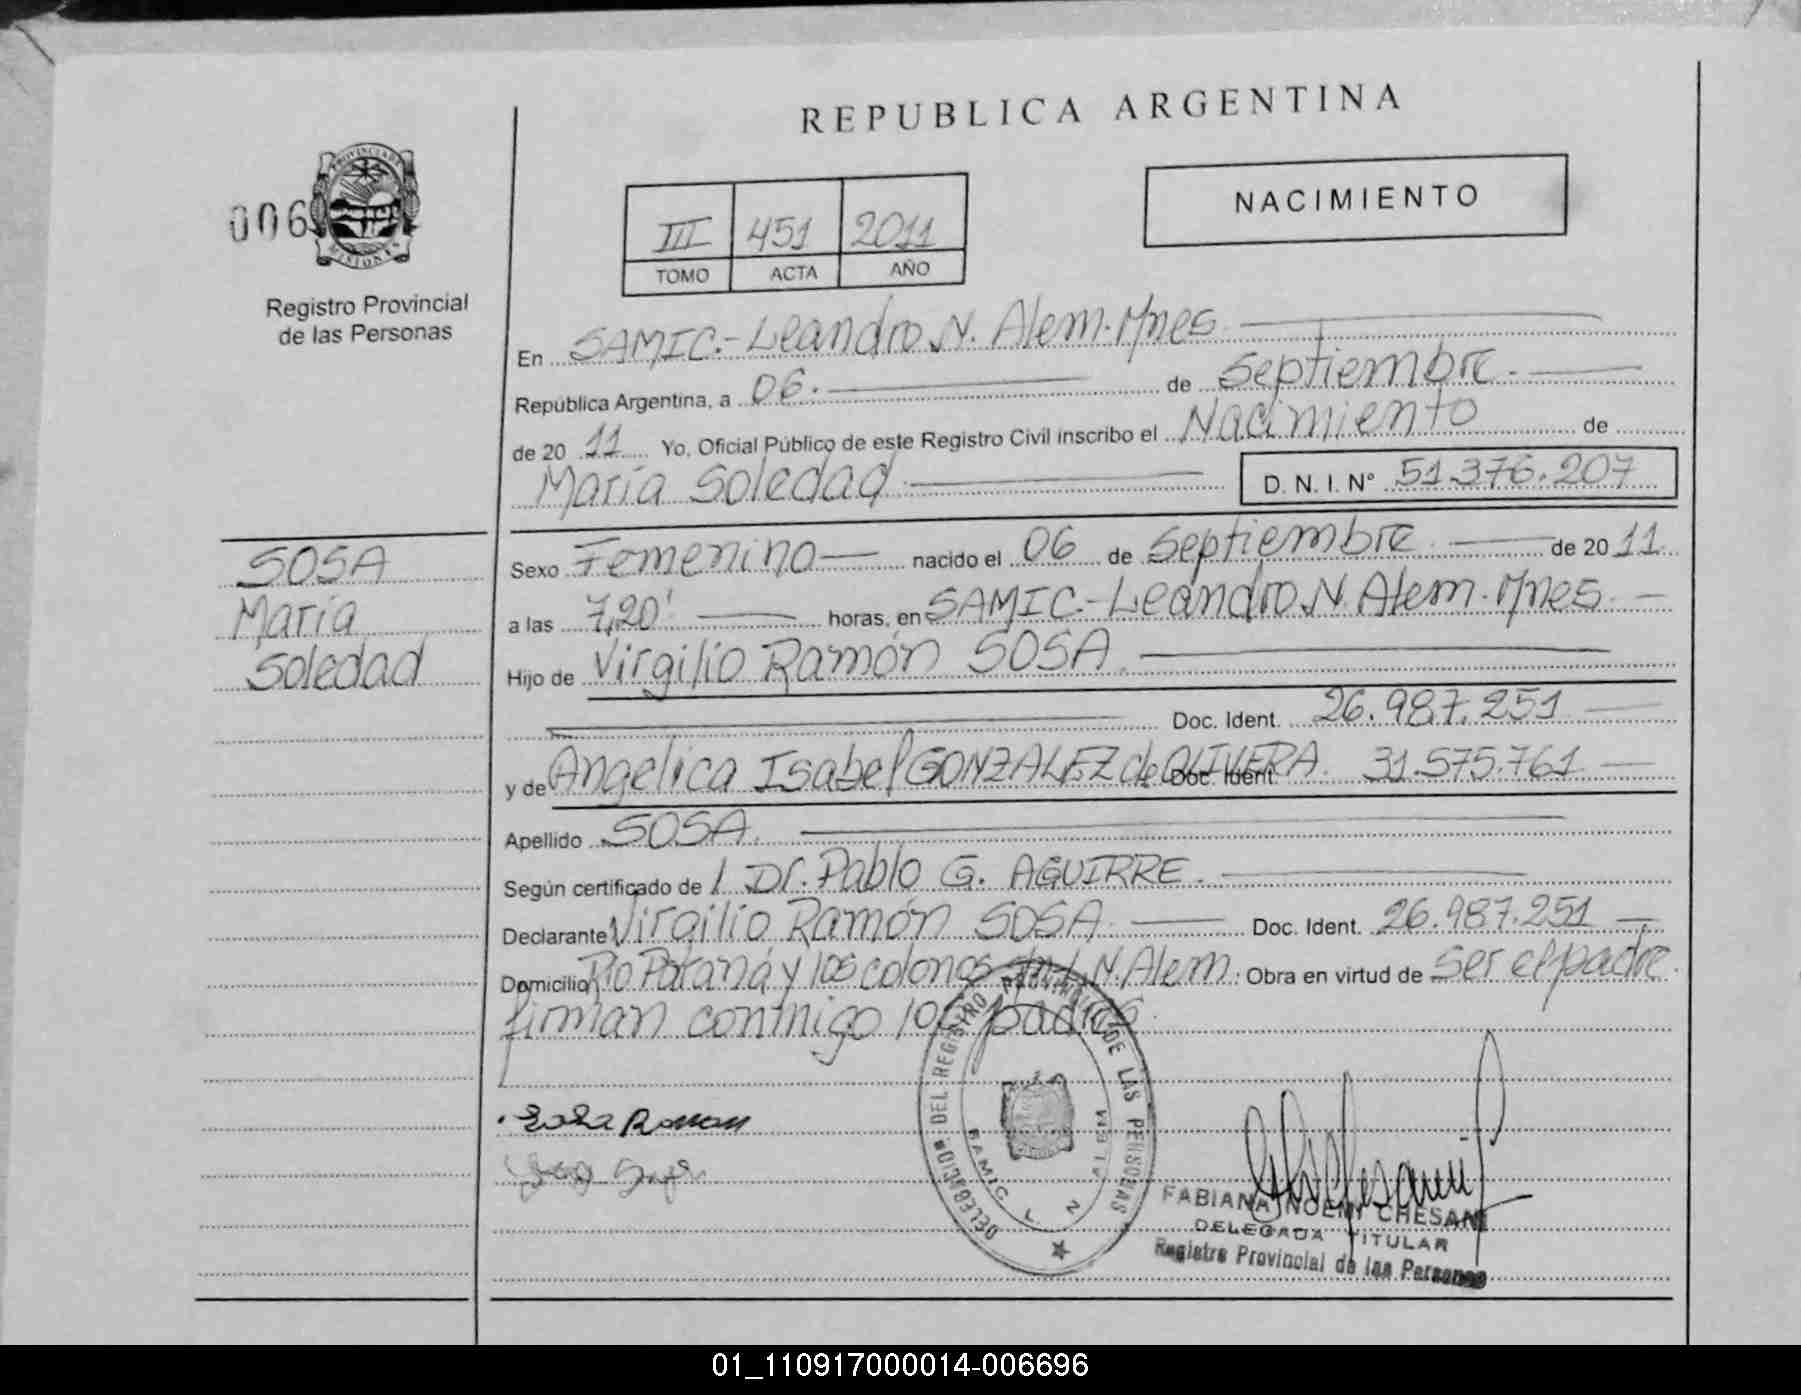 REPUBLICA ARGENTINA
006
PROVINCIA DE MISIONES
Registro Provincial
de las Personas
III 451 2011
TOMO ACTA AÑO
NACIMIENTO
En SAMIC.- Leandro N. Alem. Mnes
República Argentina, a 06. de Septiembre.
de 20 11 Yo, Oficial Público de este Registro Civil inscribo el Nacimiento de
María Soledad D. N. I. Nº 51.376.207
SOSA
María
Soledad
Sexo Femenino nacido el 06 de Septiembre de 20 11
a las 7,20' horas, en SAMIC.- Leandro N. Alem. Mnes.
Hijo de Virgilio Ramón SOSA.
Doc. Ident. 26.987.251
y de Angelica Isabel GONZALEZ de OLIVERA. Doc. Ident. 31.575.761
Apellido SOSA.
Según certificado de Dr. Pablo G. AGUIRRE.
Declarante Virgilio Ramón SOSA. Doc. Ident. 26.987.251
Domicilio Río Paraná y los colonos L.N. Alem. Obra en virtud de ser el padre
firman conmigo los padres.
Sosa Ramon
DELEGACION DEL REGISTRO PROVINCIAL DE LAS PERSONAS
SAMIC L N ALEM
FABIANA NOEMI CHESANI
DELEGADA TITULAR
Registro Provincial de las Personas
01_110917000014-006696